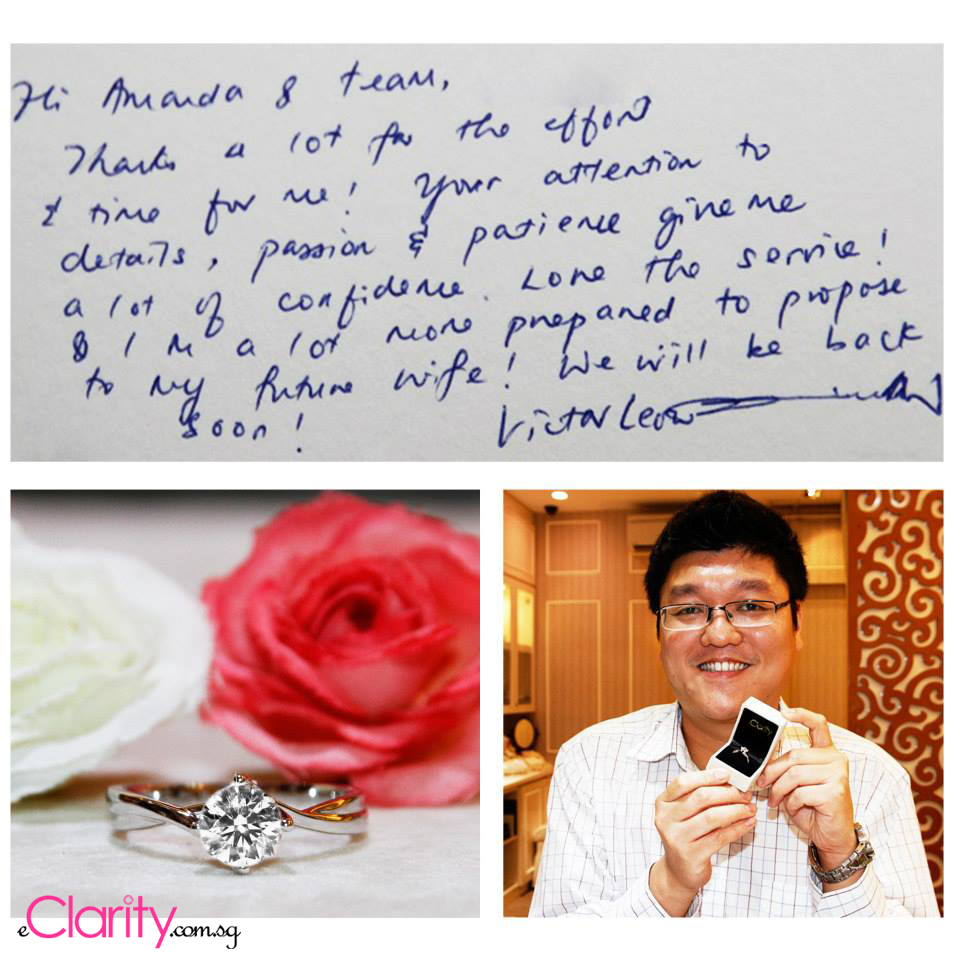 Hi Amanda & team,
Thanks a lot for the effort
& time for me! Your attention to
details, passion & patience give me
a lot of confidence. Love the service!
& I'm a lot more prepared to propose
to my future wife! We will be back
soon!
Victor Leow
Clarity
eClarity.com.sg